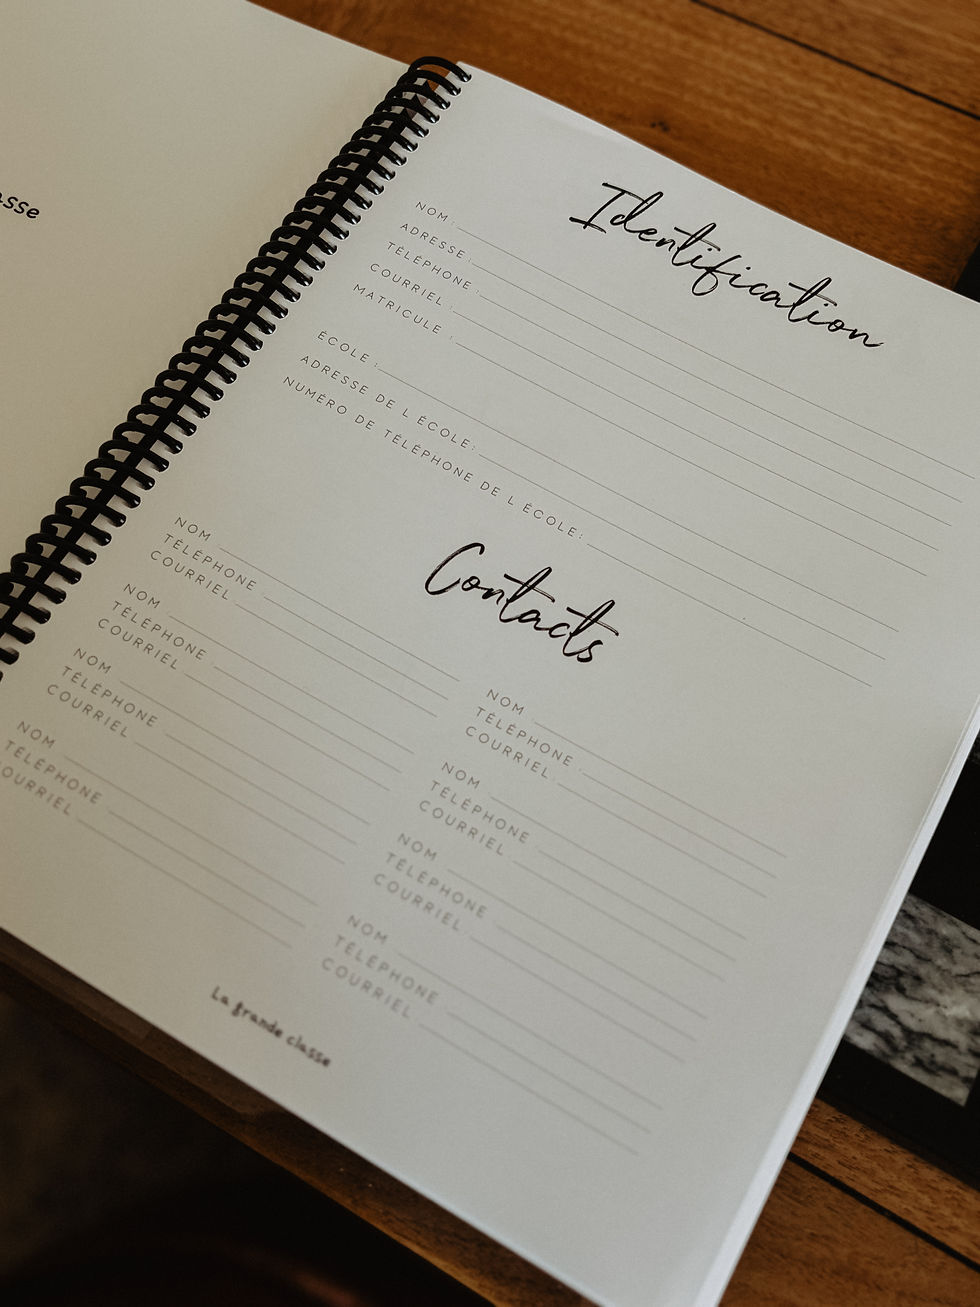 Identification
NOM :
ADRESSE :
TÉLÉPHONE :
COURRIEL :
MATRICULE :
ÉCOLE :
ADRESSE DE L ÉCOLE:
NUMÉRO DE TÉLÉPHONE DE L ÉCOLE:
Contacts
NOM
TÉLÉPHONE
COURRIEL
NOM
TÉLÉPHONE
COURRIEL
NOM
TÉLÉPHONE
COURRIEL
NOM
TÉLÉPHONE
COURRIEL
NOM
TÉLÉPHONE
COURRIEL
NOM
TÉLÉPHONE
COURRIEL
NOM
TÉLÉPHONE
COURRIEL
NOM
TÉLÉPHONE
COURRIEL
La grande classe